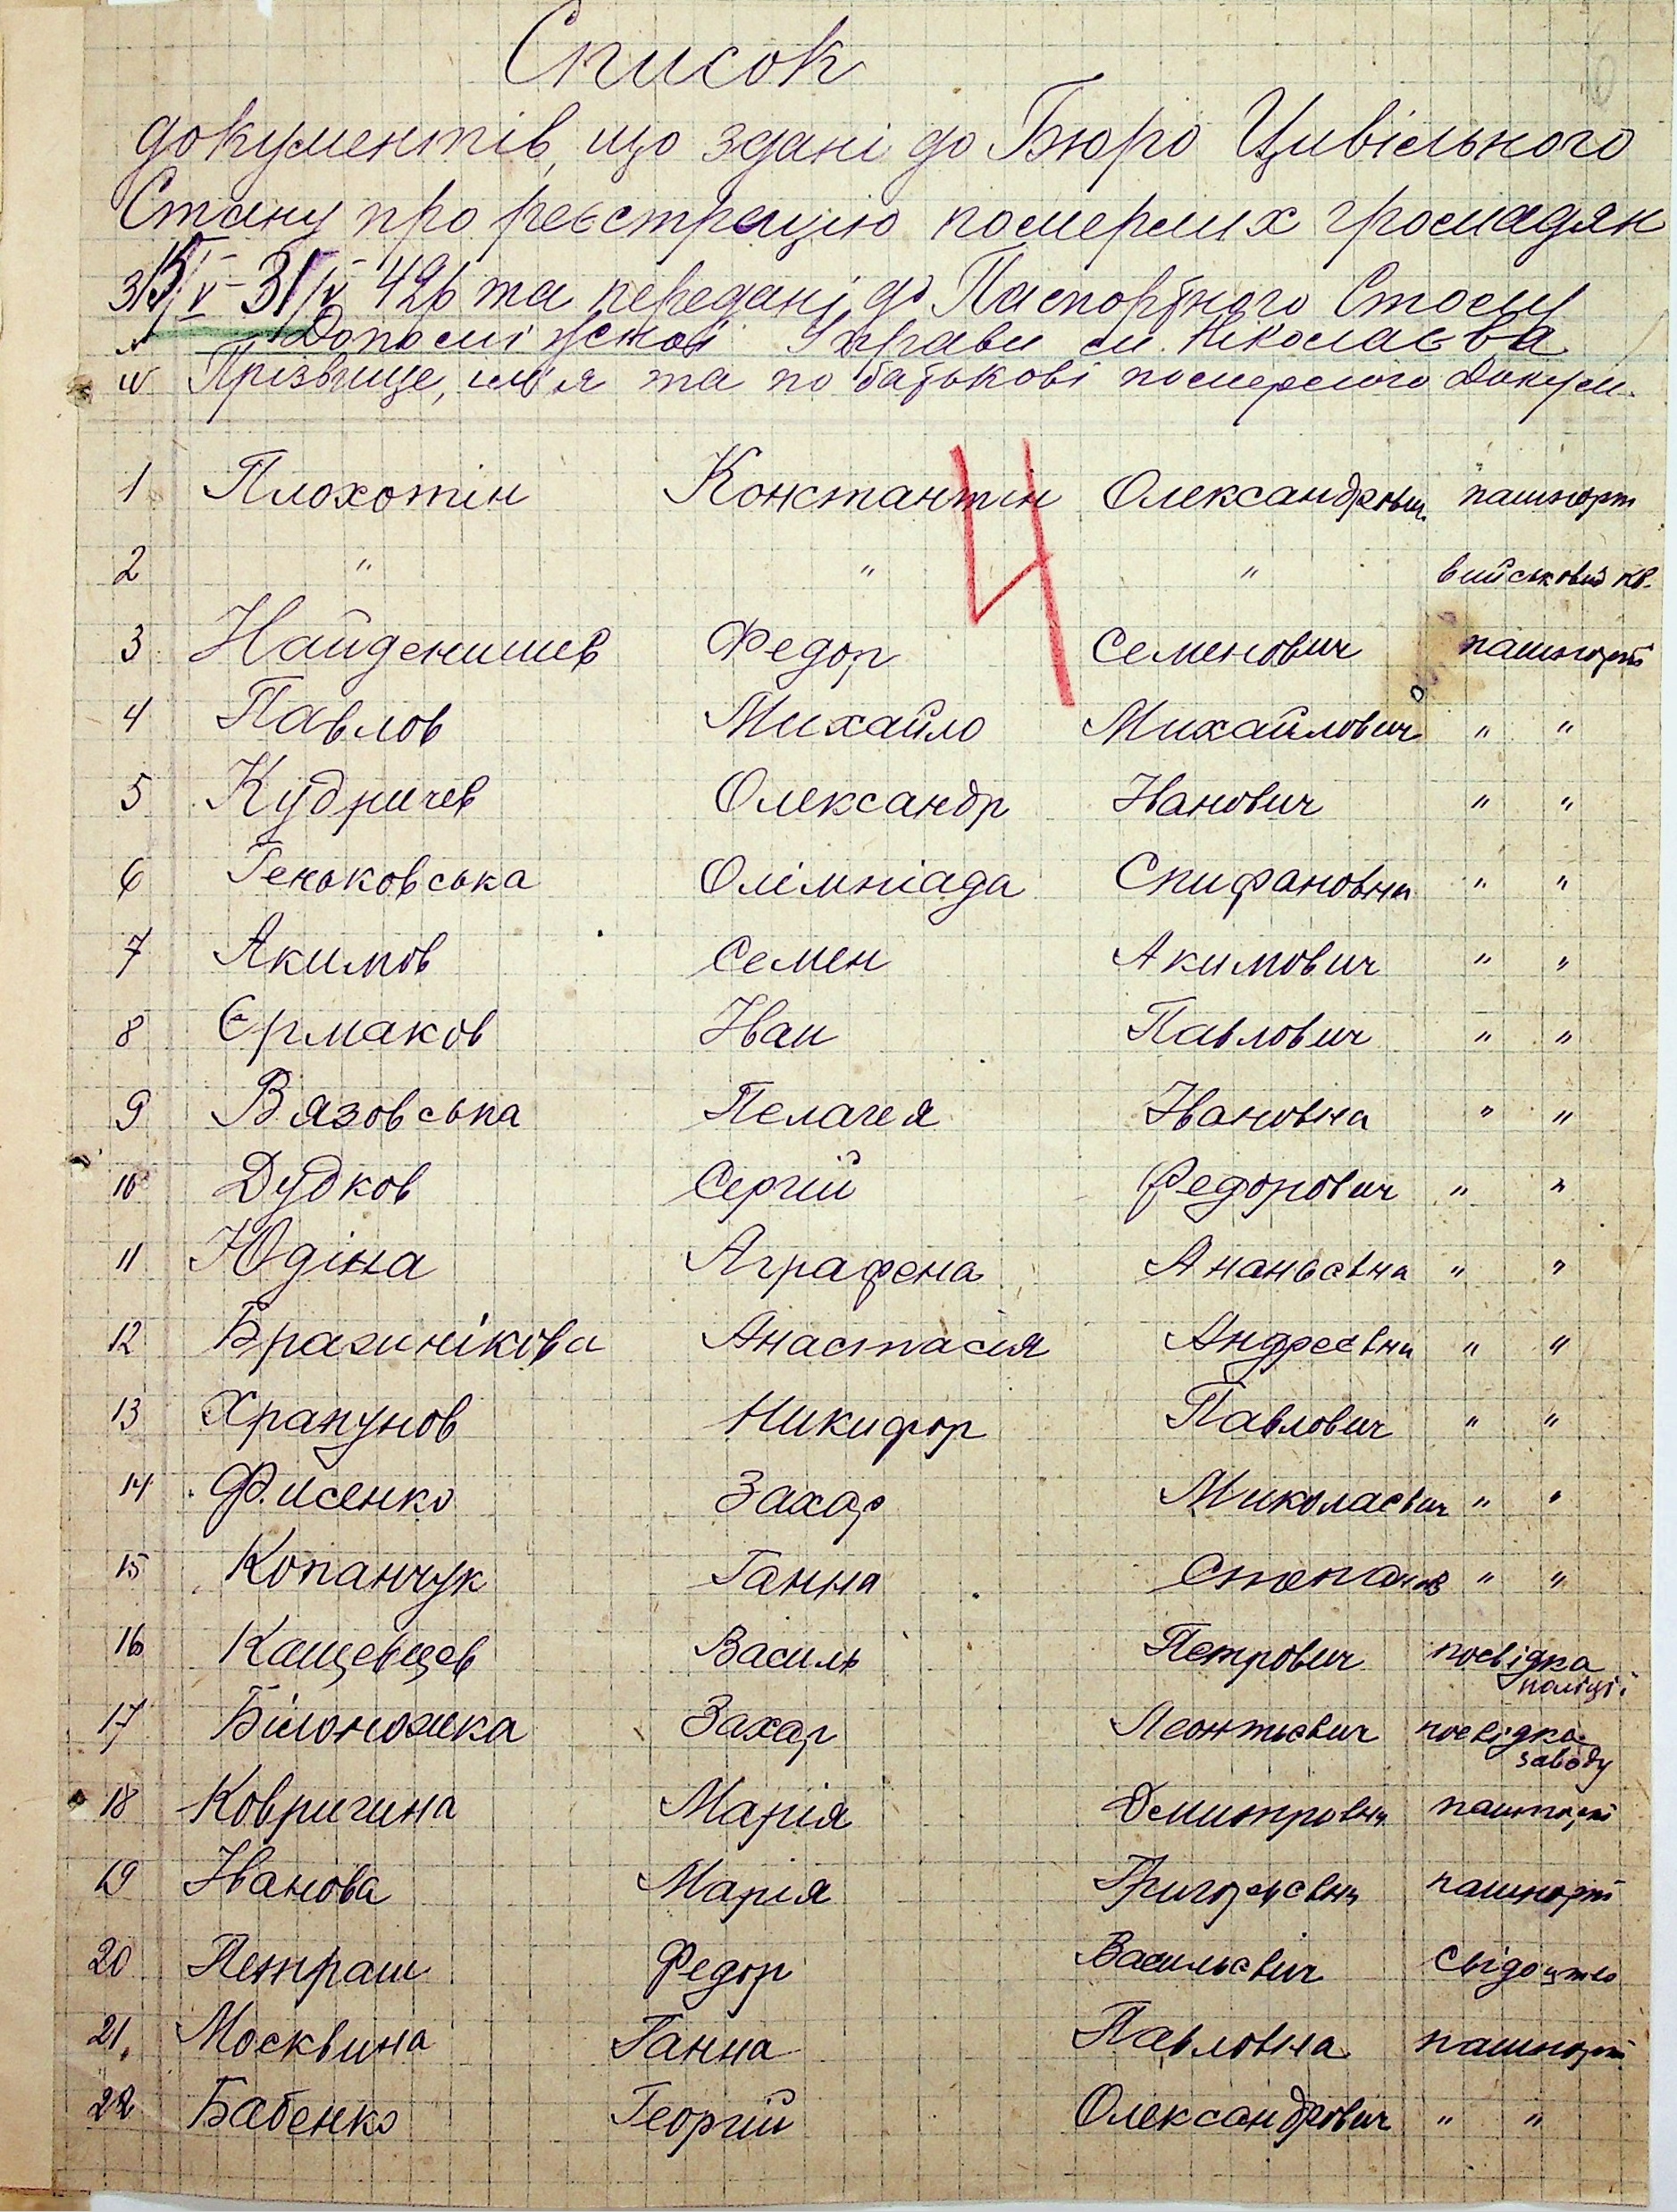 Список
документів, що здані до Бюро Цивільного
Стану про реєстрацію померлих громадян
з 15/V - 31/V 42р та передані до Паспортного Столу
Допоміжної Управи м. Ніколаєва
№ Прізвище, ім'я та по батькові померлого Докум.
1 Плохотін Константін Олександрович пашпорт
2 " " " військовий кв.
3 Найденишев Федор Семенович пашпорт
4 Павлов Михайло Михайлович " "
5 Кудричев Олександр Іванович " "
6 Геньковська Олімпіада Епифановна " "
7 Акимов Семен Акимович " "
8 Єрмаков Іван Павлович " "
9 Вязовська Пелагея Івановна " "
10 Дудков Сергій Федорович " "
11 Юдіна Аграфена Ананьєвна " "
12 Бражнікова Анастасія Андреєвна " "
13 Храпунов Никифор Павлович " "
14 Фисенко Захар Миколаєвич " "
15 Копанчук Ганна Степанов " "
16 Кащевцев Василь Петрович посвідка
поліції
17 Білоножка Захар Леонтьєвич посвідка
заводу
18 Ковригина Марія Демитровна пашпорт
19 Іванова Марія Григорьєвна пашпорт
20 Петраш Федор Васильєвіч свідоцтво
21. Москвина Ганна Павловна пашпорт
22 Бабенко Георгій Олександрович " "
4